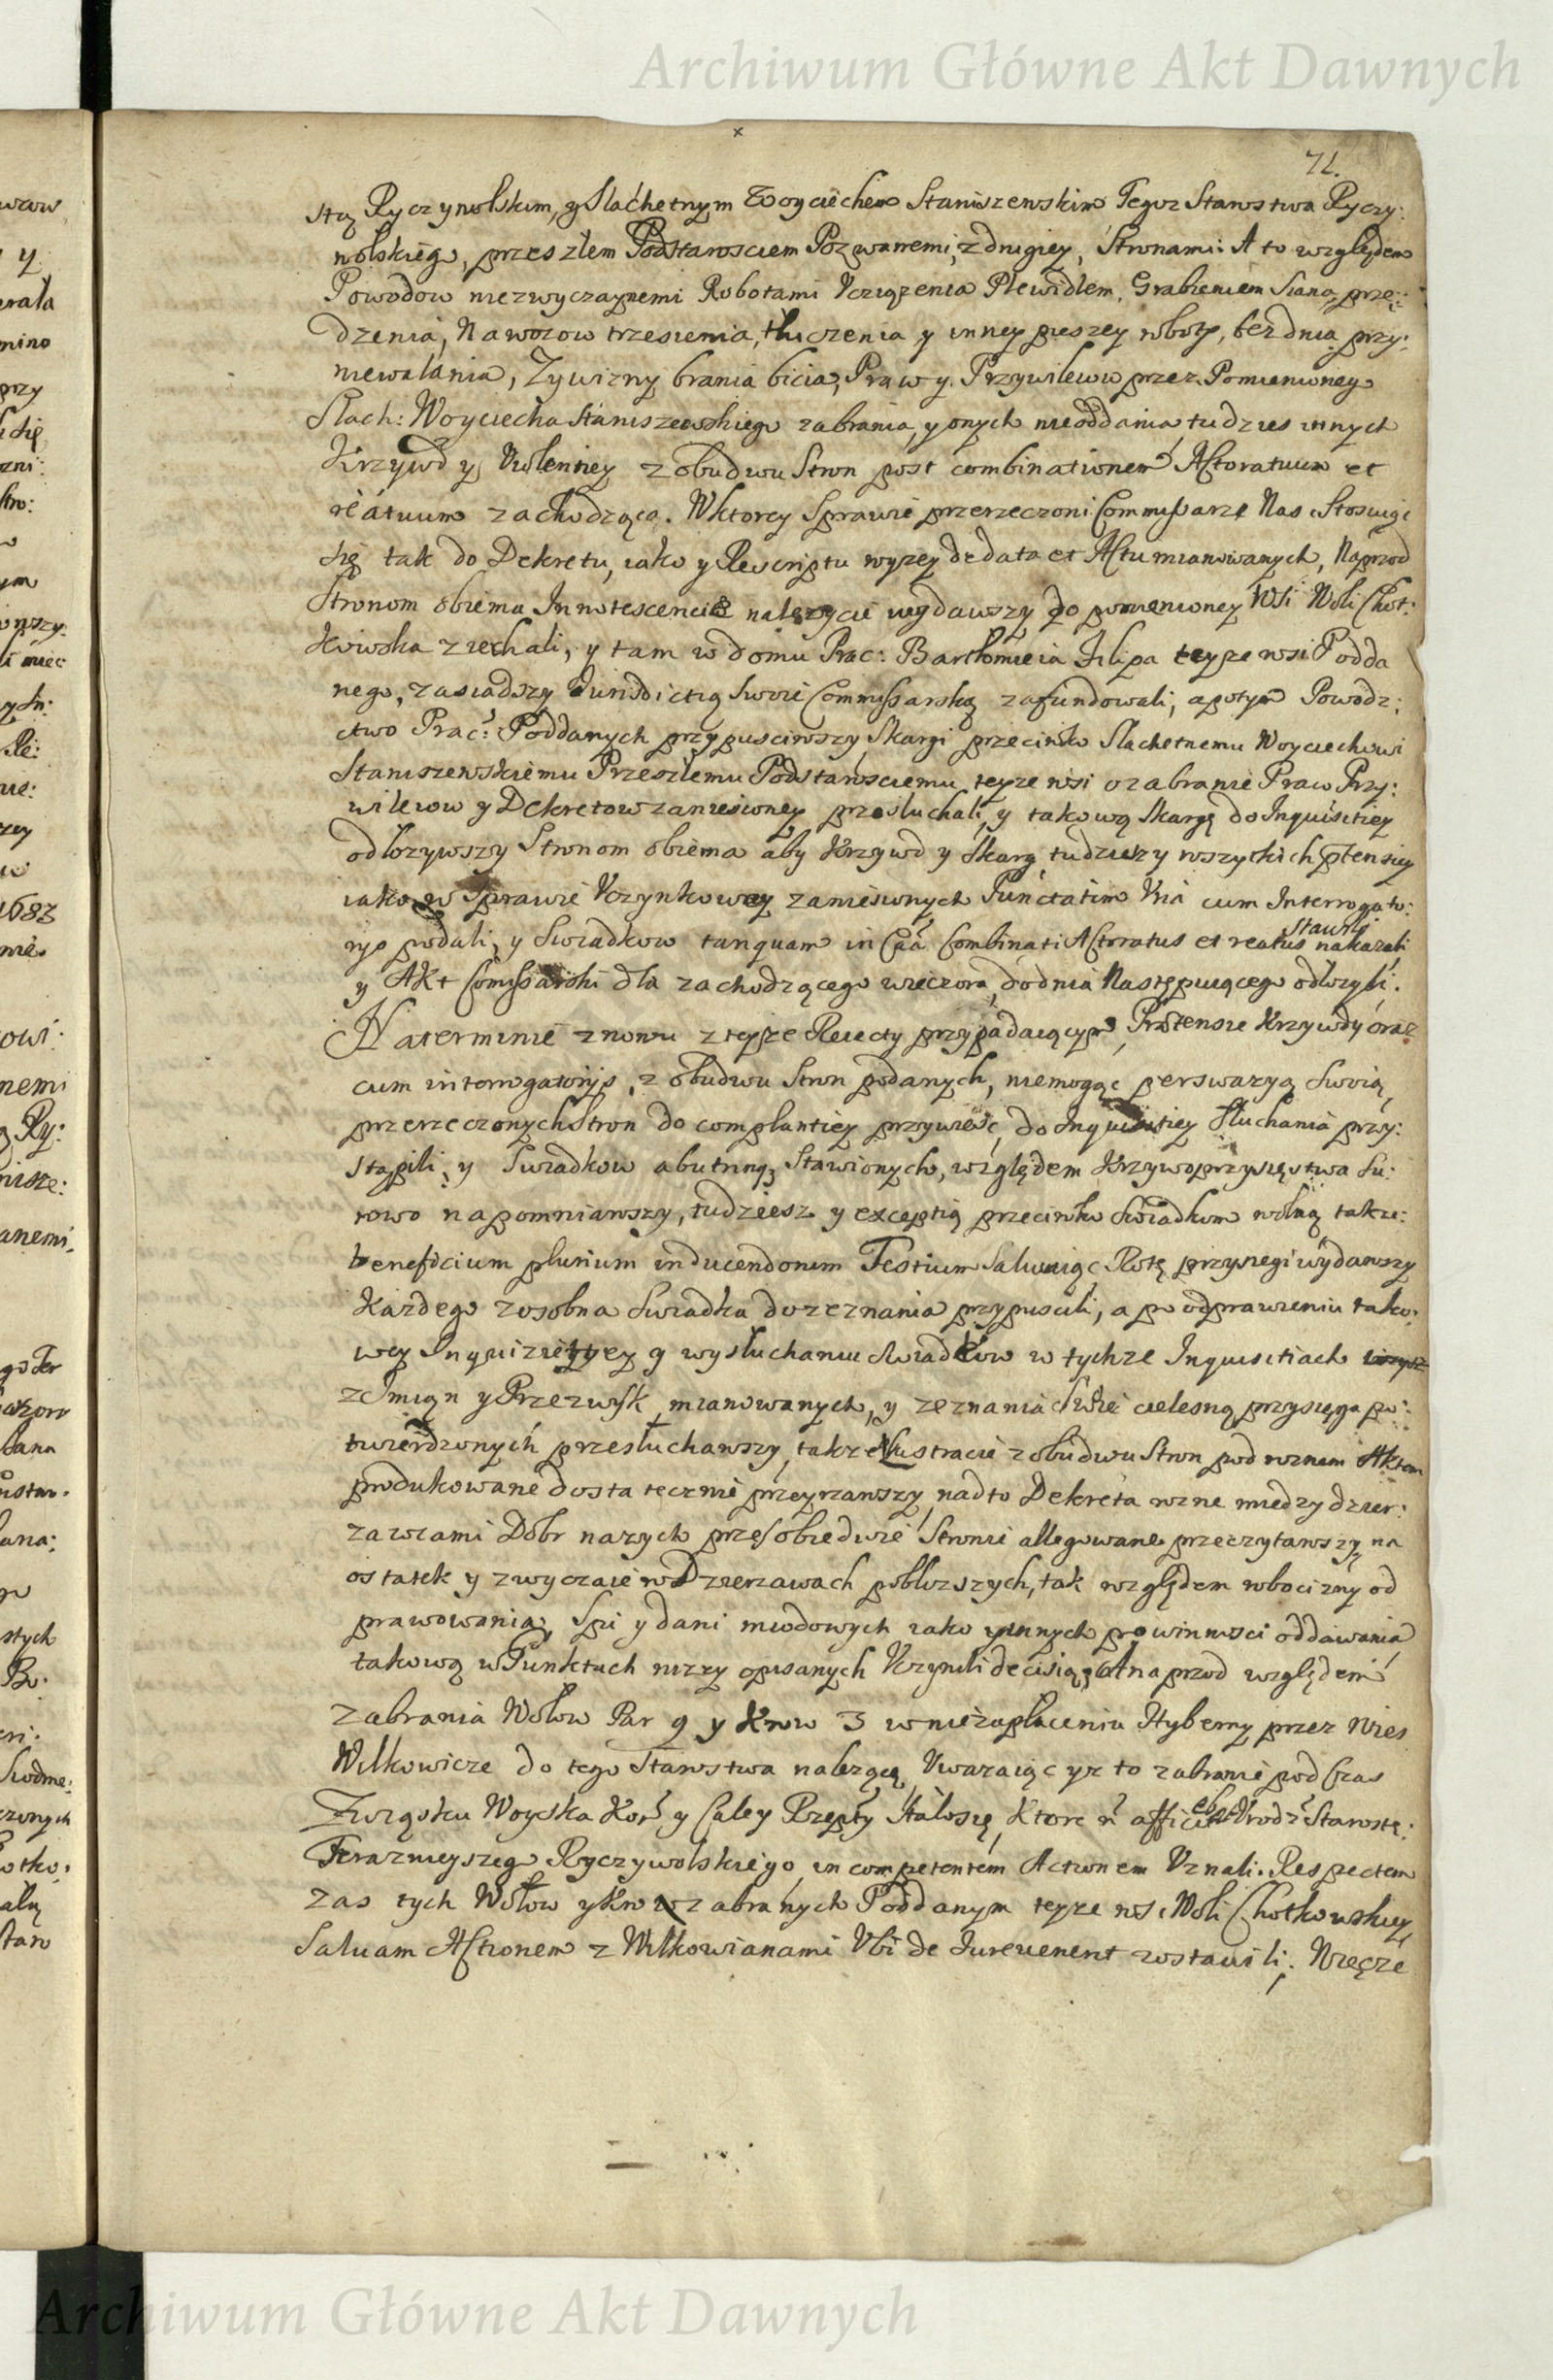 Archiwum Główne Akt Dawnych
71.
stą Ryczywolskim, y Slachetnym Woyciechem Staniszewskim Tegoz Starostwa Ryczy:
wolskiego, przeszlem Podstarosciem Pozwanemi, z drugiey, Stronami: A to względem
Powodow niezwyczaynemi Robotami Vciązenia Plewidlem, Grabieniem Siana, przę:
dzenia, Nawozow trzesienia, tłuczenia y inney pieszey roboty, bez dnia przy:
niewalania, Zywizny brania bicia, Praw y Przywilewow przez Pomienionego
Slach: Woyciecha Staniszewskiego zabrania, y onych nieoddania, tudzies innych
Krzywd y Violenciey z obudwu Stron post combinationem Actoratuum et
reatuum zachodzącą. W ktorey Sprawie przerzeczoni Commissarze Nasi Stosuiąc
się tak do Dekretu, iako y Rescriptu wyzey de data et Actu mianowanych, Naprzod
Stronom obiema Innotescencie nalezycie wydawszy do pomienioney Wsi Woli Chot:
kowska ziechali, y tam w domu Prac: Bartłomieia Filipa teyze wsi Podda
nego, zasiadszy Iurisdictią Swoie Commissarską zafundowali, a potym Powodz:
ctwo Prac: Poddanych przypusciwszy Skargi przeciwko Slachetnemu Woyciechowi
Staniszewskiemu Przeszłemu Podstarosciemu teyze wsi o zabranie Praw Przy:
wilewow y Dekretow zaniesioney przesłuchali, y takową Skargę do Inquisitiey
odlozywszy Stronom obiema aby Krzywd y Skarg tudziesz y wszyckich ptensiey
iako w Sprawie Vczynkowey zaniesionych Punctatim Kia cum Interrogato:
rys podali, y Swiadkow tanquam in Caa Combinati Actoratus et reatus stawili nakazali
y Akt Comissarski dla zachodzącego wieczora, do dnia Następuiącego odlozyli.
Na terminie znowu z teyze Reiecty przypadaiącym, Prætensie Krzywdy oraz
cum interrogatorijs, z obudwu Stron podanych, niemogąc perswazyą Swoią
przerzeczonych Stron do complantiey przywiesc, do Inquisitiey Słuchania przy:
stąpili, y Swiadkow ab utrinq; Stawionych, względem Krzywoprzysięstwa Su:
rowo napomniawszy, tudziesz y exceptią przeciwko Swiadkom wolną takze:
beneficium plurium inducendorum Testium Salwuiąc Rotę przysiegi wydawszy
Kazdego zosobna Swiadka do zeznania przypuscili, a po odprawieniu tako:
wey Inquizitiey y wysłuchaniu Swiadkow w tychze Inquisitiach
z Imion y Przezwysk mianowanych, y zeznania Swoie cielesną przysięga po:
twierdzonych przesłuchawszy, takze Lustracie z obudwu Stron pod roznem Aktem
produkowane dostatecznie przeyrzawszy, nadto Dekreta rozne miedzy dzier:
zawcami Dobr naszych przez obiedwie Stronie allegowane przeczytawszy na
ostatek y zwyczaie w Dzierzawach poblizszych, tak względem robocizny od
prawowania, Spi y dani miodowych iako y innych powinnosci oddawania
takową w Punktach nizey opisanych Vczynili decisią; A naprzod względem
zabrania Wołow Par 9 y Krow 3 w niezapłaceniu Hyberny przez Wies
Wilkowicze do tego Starostwa nalezącą, Vwazaiąc yz to zabranie pod Czas
Związku Woyska Kor: y Całey Rzepty Stałosię, Ktore ñ afficiebat Vrodz: Starostę:
Terazniejszego Ryczywolskiego, incompetentem Actionem Vznali. Respectem
zas tych Wołow y Krow zabranych Poddanym teyze wsi Woli Chotkowskiey
Saluam Actionem z Wilkowianami Vbi de Iure uenerit zostawili. Wiecze
Archiwum Główne Akt Dawnych